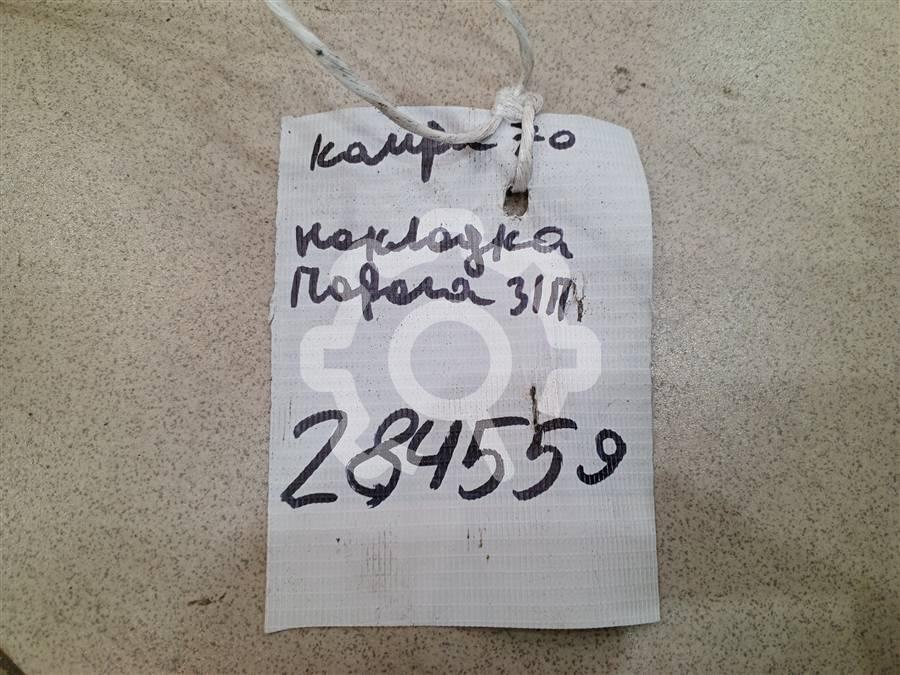 камри 70
накладка
порога З/П
284559